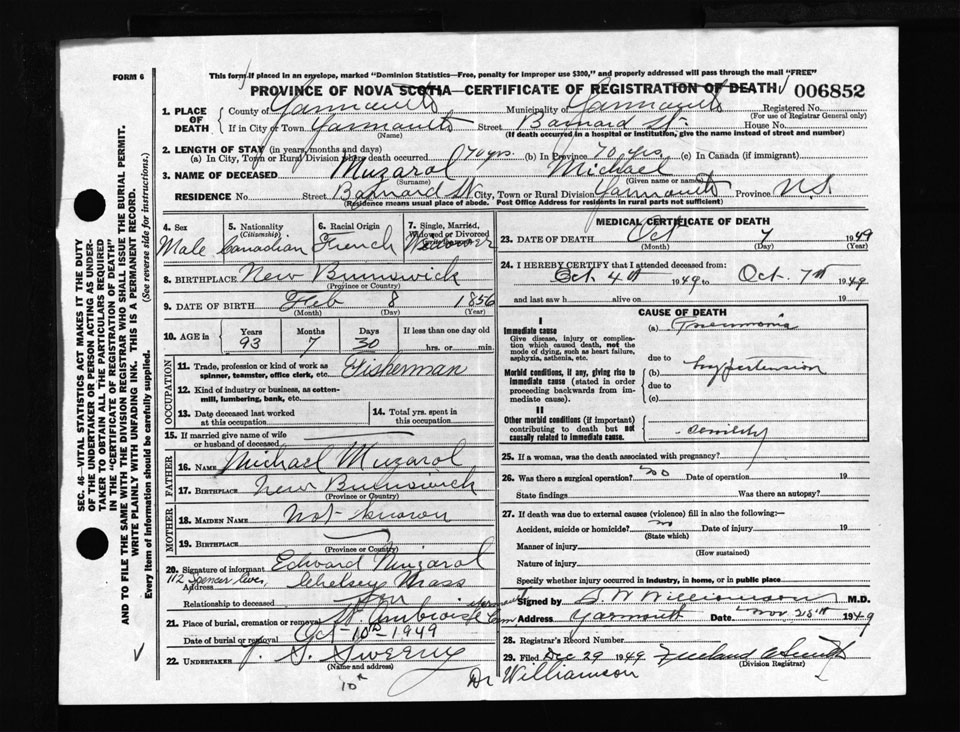 FORM 6
This form, if placed in an envelope, marked "Dominion Statistics—Free, penalty for improper use $300," and properly addressed will pass through the mail "FREE"
PROVINCE OF NOVA SCOTIA—CERTIFICATE OF REGISTRATION OF DEATH 006852
1. PLACE OF DEATH
County of Yarmouth Municipality of Yarmouth Registered No.
(For use of Registrar General only)
If in City or Town Yarmouth Street Barnard St. House No.
(Name) (If death occurred in a hospital or institution, give the name instead of street and number)
2. LENGTH OF STAY (in years, months and days)
(a) In City, Town or Rural Division where death occurred 70 yrs. (b) In Province 70 yrs (c) In Canada (if immigrant)
3. NAME OF DECEASED Muzarol Michael
(Surname) (Given name or names)
RESIDENCE No. Street Barnard St City, Town or Rural Division Yarmouth Province N.S.
(Residence means usual place of abode. Post Office Address for residents in rural parts not sufficient)
4. Sex Male
5. Nationality (Citizenship) Canadian
6. Racial Origin French
7. Single, Married, Widowed or Divorced Widower
8. BIRTHPLACE New Brunswick
(Province or Country)
9. DATE OF BIRTH Feb 8 1856
(Month) (Day) (Year)
10. AGE in Years 93 Months 7 Days 30 If less than one day old hrs. or min.
OCCUPATION
11. Trade, profession or kind of work as spinner, teamster, office clerk, etc. Fisherman
12. Kind of industry or business, as cotton-mill, lumbering, bank, etc.
13. Date deceased last worked at this occupation
14. Total yrs. spent in this occupation
15. If married give name of wife or husband of deceased
FATHER
16. NAME Michael Muzarol
17. BIRTHPLACE New Brunswick
(Province or Country)
MOTHER
18. MAIDEN NAME Not known
19. BIRTHPLACE
(Province or Country)
20. Signature of informant Edward Muzarol
Address 112 Spencer Ave, Chelsey Mass
Relationship to deceased Son
21. Place of burial, cremation or removal St. Ambroise Cem
Date of burial or removal Oct-10th-1949
22. UNDERTAKER S. Sweeny
(Name and address)
MEDICAL CERTIFICATE OF DEATH
23. DATE OF DEATH Oct 7 1949
(Month) (Day) (Year)
24. I HEREBY CERTIFY that I attended deceased from:
Oct. 4th 1949 to Oct. 7th 1949
and last saw h alive on 19
CAUSE OF DEATH
I
Immediate cause (a) Pneumonia
Give disease, injury or complication which caused death, not the mode of dying, such as heart failure, asphyxia, asthenia, etc. due to
Morbid conditions, if any, giving rise to immediate cause (stated in order proceeding backwards from immediate cause). (b) hypertension
due to
(c)
II
Other morbid conditions (if important) contributing to death but not causally related to immediate cause. senility
25. If a woman, was the death associated with pregnancy?
26. Was there a surgical operation? no Date of operation 19
State findings Was there an autopsy?
27. If death was due to external causes (violence) fill in also the following:—
Accident, suicide or homicide? no Date of injury 19
(State which)
Manner of injury
(How sustained)
Nature of injury
Specify whether injury occurred in industry, in home, or in public place
Signed by S. W. Williamson M.D.
Address Yarmouth Date Nov. 25th 1949
28. Registrar's Record Number
29. Filed Dec 29 1949
(Division Registrar)
Dr Williamson
SEC. 46—VITAL STATISTICS ACT MAKES IT THE DUTY
OF THE UNDERTAKER OR PERSON ACTING AS UNDER-
TAKER TO OBTAIN ALL THE PARTICULARS REQUIRED
IN THE "CERTIFICATE OF REGISTRATION OF DEATH"
AND TO FILE THE SAME WITH THE DIVISION REGISTRAR WHO SHALL ISSUE THE BURIAL PERMIT.
WRITE PLAINLY WITH UNFADING INK. THIS IS A PERMANENT RECORD.
Every item of information should be carefully supplied. (See reverse side for instructions.)